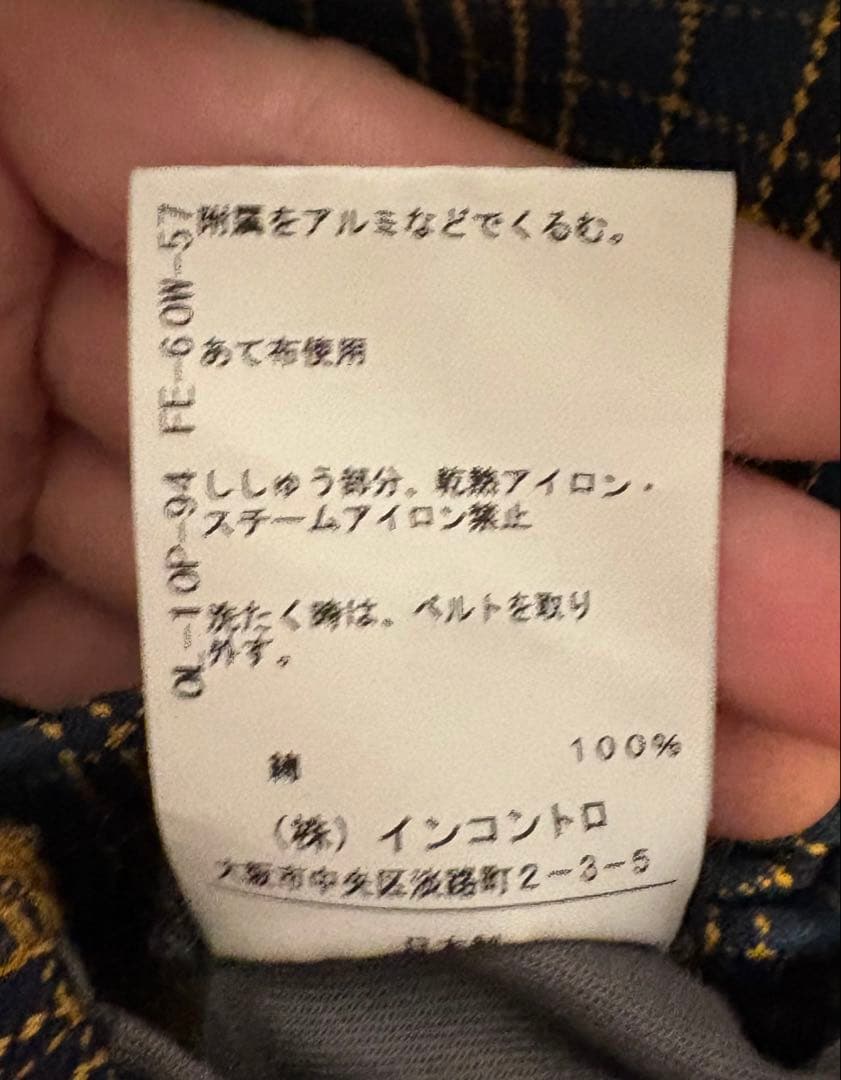 附属をアルミなどでくるむ。
あて布使用
ししゅう部分。乾熱アイロン・
スチームアイロン禁止
洗たく時は。ベルトを取り
外す。
綿 100%
(株) インコントロ
大阪市中央区淡路町2-3-5
日本製
QL-10P-94 FE-60W-57